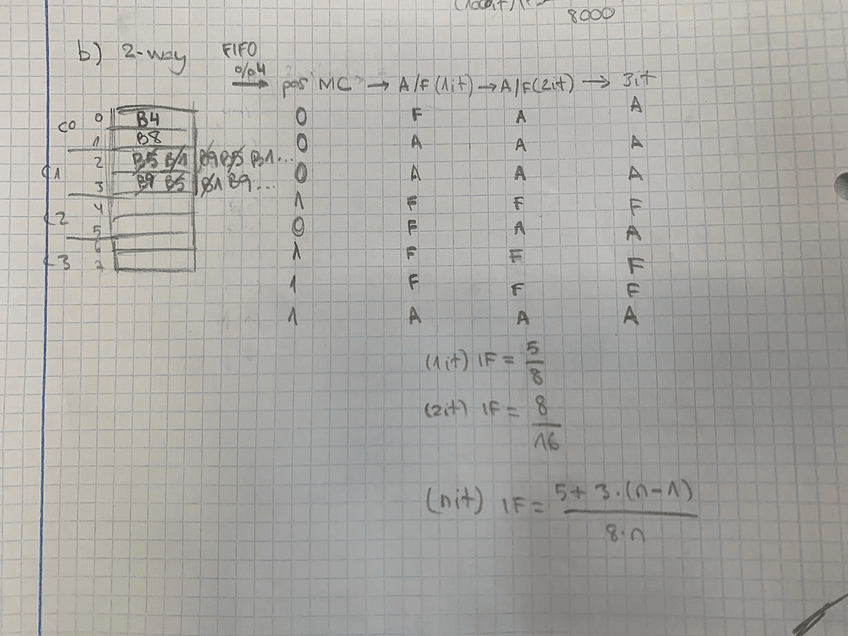 8000
b) 2-way FIFO
%4
pos MC → A/F (1it) → A/F (2it) → 3it
C0 0 B4 0 F A A
1 B8 0 A A A
C1 2 B5 B1 B9 B5 B1... 0 A A A
3 B9 B5 B1 B9... 1 F F F
C2 4 0 F A A
5 1 F F F
C3 6 1 F F F
7 1 A A A
(1it) IF = 5/8
(2it) IF = 8/16
(nit) IF = 5+3·(n-1)/8·n